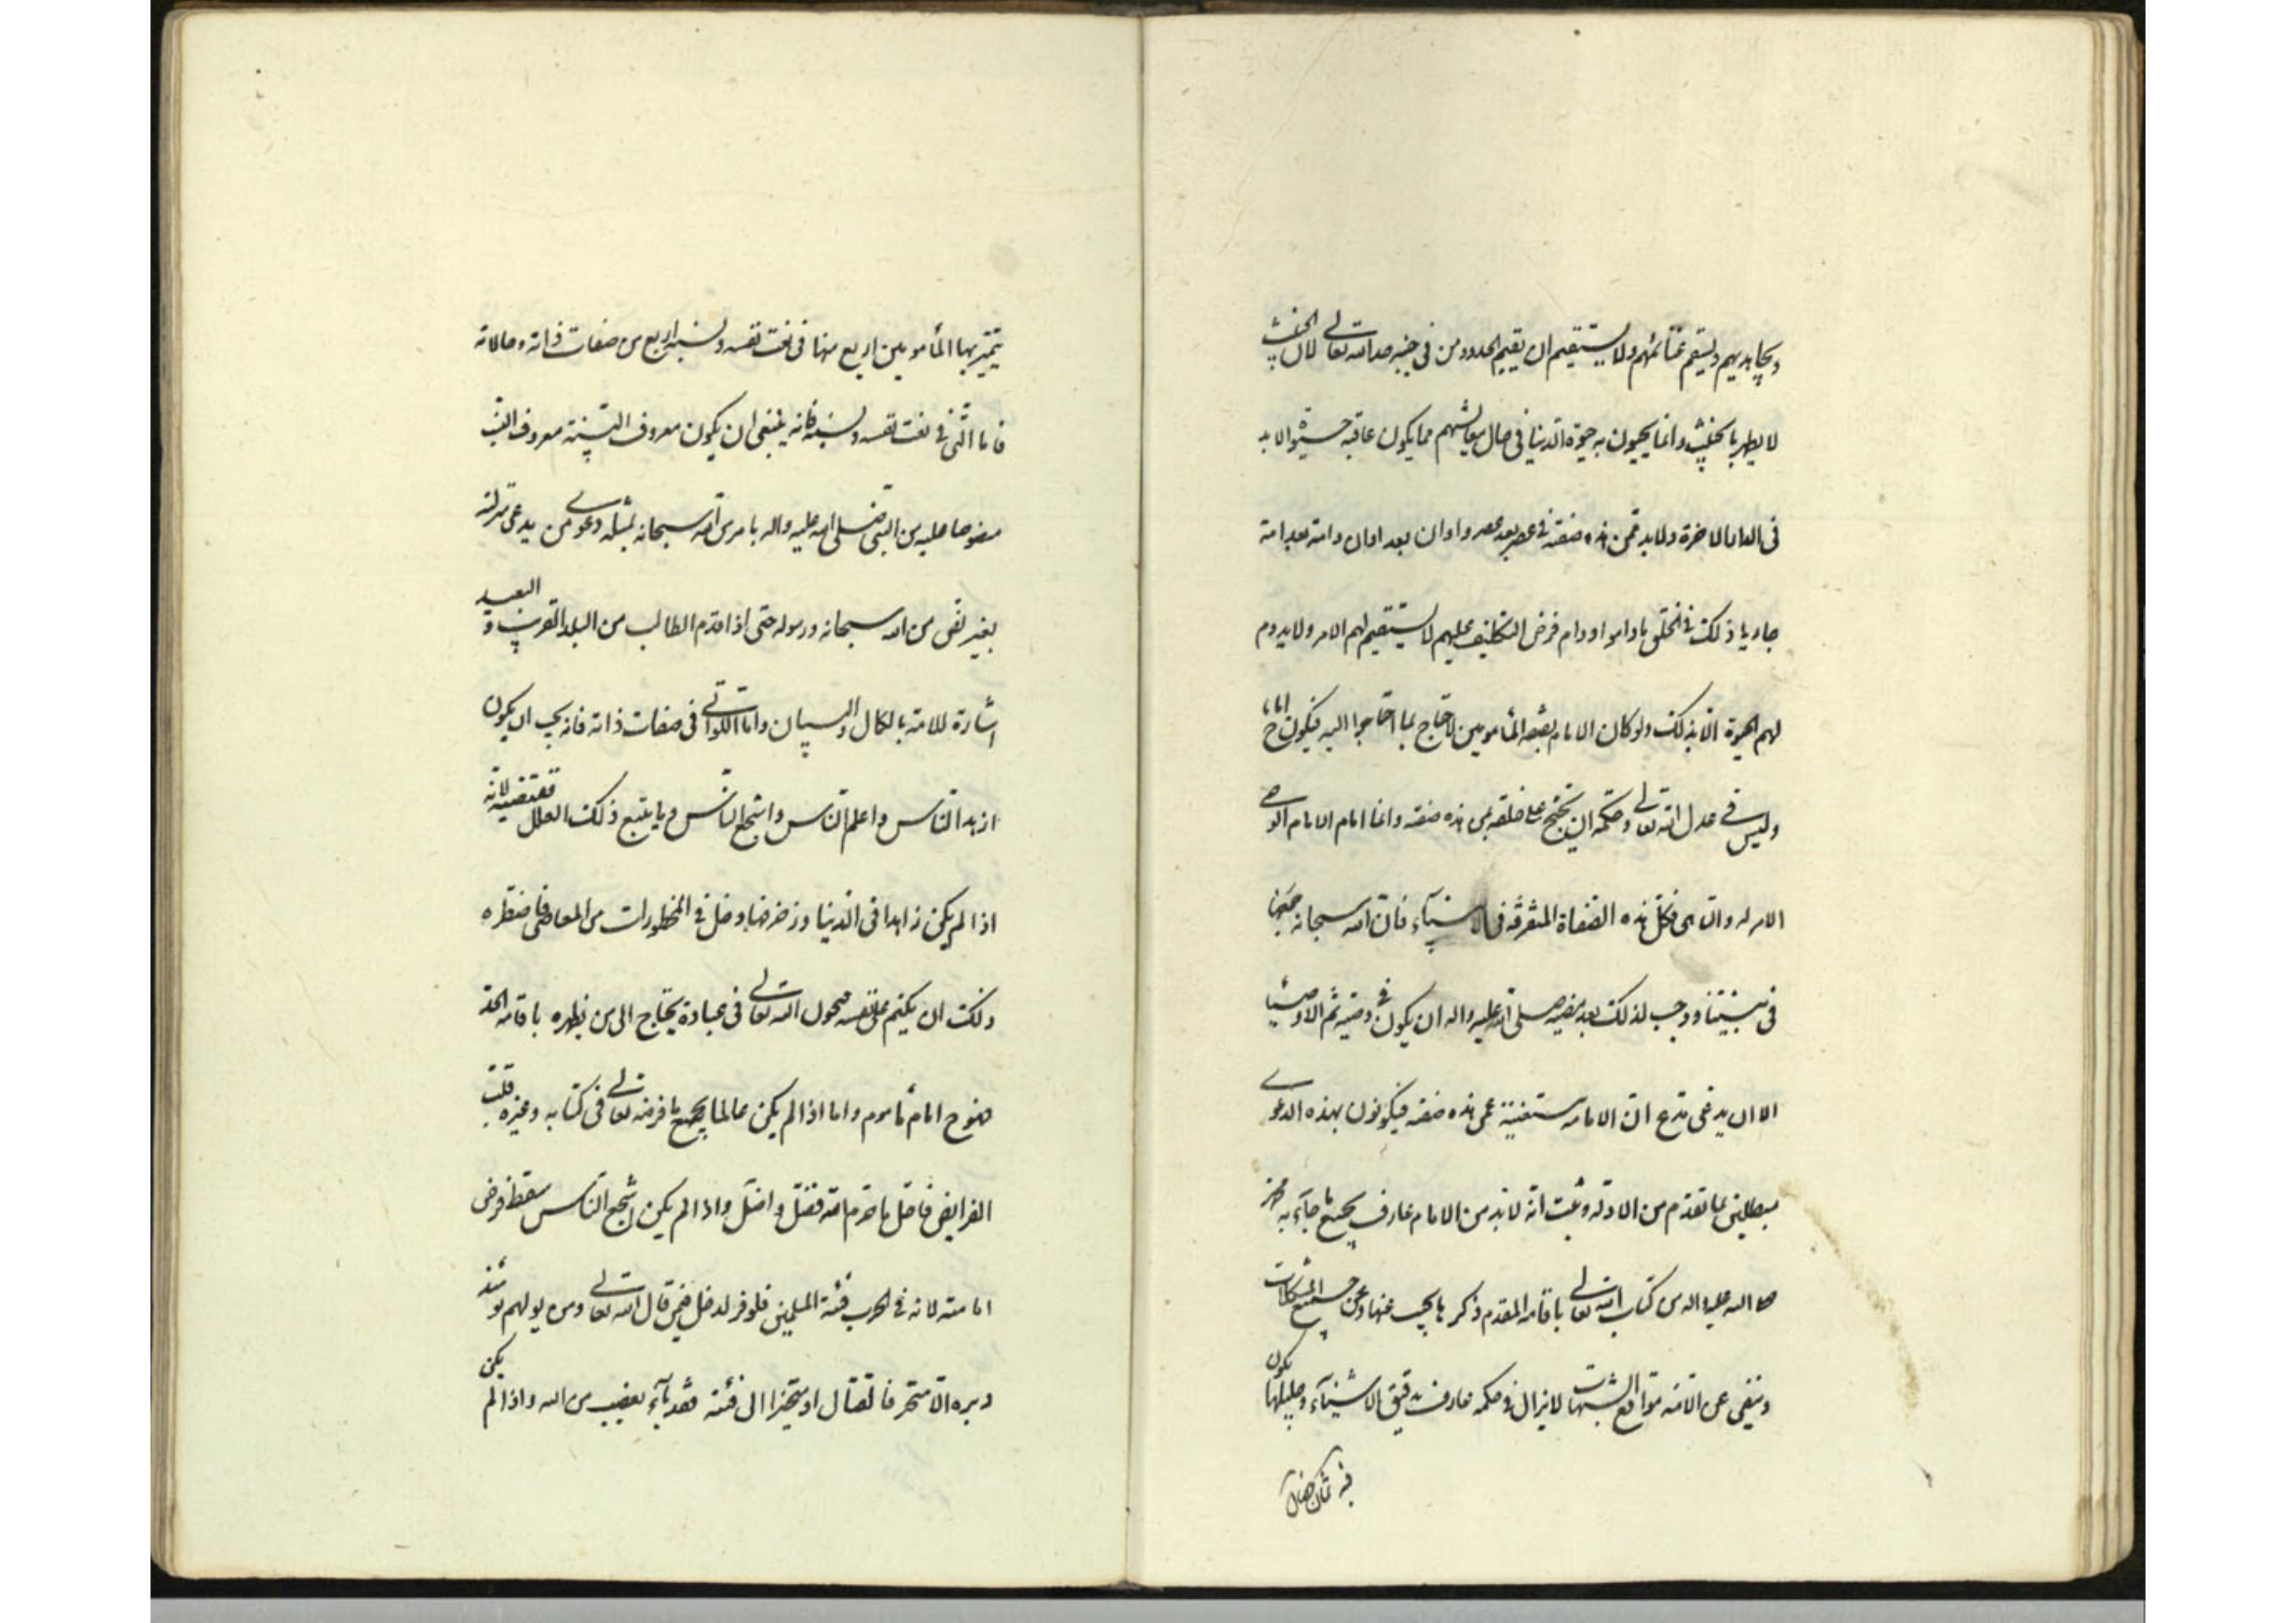 ويجاهد بهم ويقسم غنائمهم ولا يستقيم ان يقيم الحدود من في جنبه حد الله تعالى لان الخبيث
لا يطهر بالخبيث وانما يحيون به حيوة الدنيا في حال معاشهم مما يكون عاقبه الابد
في الدار الاخرة ولابد ممن هذه صفته في عصر بعد عصر واوان بعد اوان وامة بعد امة
جاريا ذلك في الخلق ماداموا ودام فرض التكليف عليهم لا يستقيم لهم الامر ولا يدوم
لهم الحيوة الا بذلك ولو كان الامام بصفة المأمومين لاحتاج بما احتاجوا اليه فيكون ح اماما
وليس في عدل الله تعالى وحكمه ان يحتج على خلقه بمن هذه صفته وانما امام الامام الوحي
الامر له والناهي فكل هذه الصفاة المتفرقة في الانبياء فان الله سبحانه جمعها
في نبينا ووجب لذلك بعد مضيه صلى الله عليه واله ان يكون في وصيه ثم الاوصياء
الا ان يدعي مدع ان الامامه مستغنية عمن هذه صفته فيكونون بهذه الدعوى
مبطلين بما تقدم من الادلة وثبت انه لابد من الامام عارف بجميع ما جاء به محمد
صلى الله عليه واله من كتاب الله تعالى باقامه المقدم ذكر ما يجب عنها وعن جميع المشكلات
وينفي عن الامة مواقع الشبهات لا يزال في حكمه عارف بدقيق الاشياء وجليلها يكون
فيه ثمان خصال
يتميز بها المأمومين اربع منها في نعت نفسه ونسبه واربع من صفات ذاته وحالاته
فاما التي في نعت نفسه ونسبه فانه ينبغي ان يكون معروف البيت معروف النسب
منصوصا عليه من النبي صلى الله عليه واله بامر من الله سبحانه بمثله دعوى من يدعي منزلته
بغير نص من الله سبحانه ورسوله حتى اذا قدم الطالب من البلد القريب والبعيد
اشارة للامة بالكمال والبيان واما اللواتي في صفات ذاته فانه يجب ان يكون
ازهد الناس واعلم الناس واشجع الناس وما يتبع ذلك العلل تقتضيه لانه
اذا لم يكن زاهدا في الدنيا وزخرفها دخل في المحظورات من المعاصي فاضطره
ذلك ان يكتم على نفسه فيخون الله تعالى في عباده يحتاج الى من يطهره باقامه الحد
فهو ح امام مأموم واما اذا لم يكن عالما بجميع ما فرضه تعالى في كتابه وغيره قلب
الفرايض فاحل ما حرم الله فضل واضل واذا لم يكن اشجع الناس سقط فرض
امامته لانه في الحرب فئة المسلمين فلو فر لدخل فيمن قال الله تعالى ومن يولهم يومئذ
دبره الا متحرفا لقتال او متحيزا الى فئة فقد باء بغضب من الله واذا لم يكن